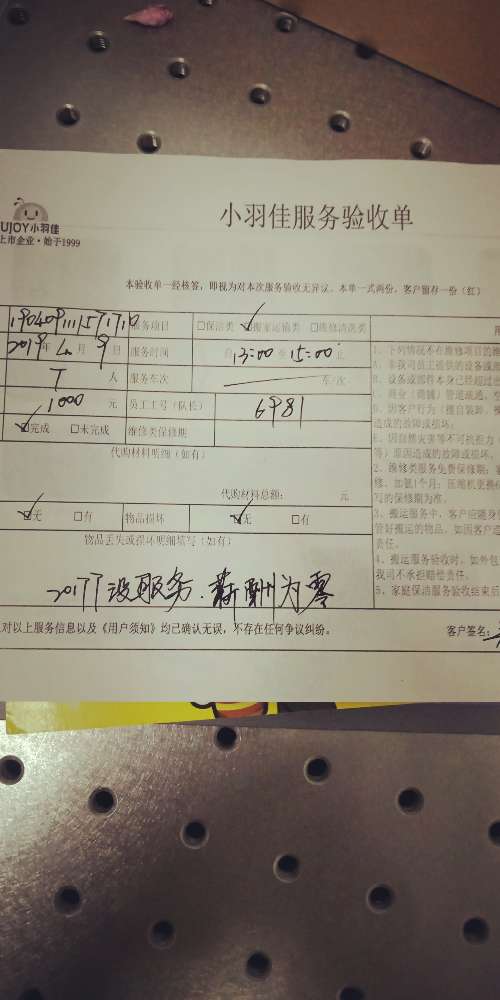 UJOY小羽佳
上市企业·始于1999
小羽佳服务验收单
本验收单一经核答,即视为对本次服务验收无异议。本单一式两份,客户留存一份(红)
服务项目 □保洁类 ☑搬家运输类 □维修清洗类
2019年4月9日 服务时间 自13:00至15:00止
人 服务车次 车/次
1000元 员工工号(队长) 6981
☑完成 □未完成 维修类保修期
代购材料明细(如有)
代购材料总额: 元
☑无 □有 物品损坏 ☑无 □有
物品丢失或损坏明细填写(如有)
没服务.薪酬为零
对以上服务信息以及《用户须知》均已确认无误,不存在任何争议纠纷。 客户签名:
1、下列情况不在维修项目的维
A、非我司员工提供的设备或
B、设备或部件本身已经超过
D、因客户行为(擅自装卸、
造成的故障或损坏;
E、因自然灾害等不可抗力
等)原因造成的故障或损坏。
2、维修类服务免费保修期:
修、加氨1个月;压缩机更换
写的保修期为准。
3、搬运服务中,客户应随身
管好搬运的物品,如因客户
责任。
4、搬运服务验收时,如外包
我司不承担赔偿责任。
5、家庭保洁服务验收结束后